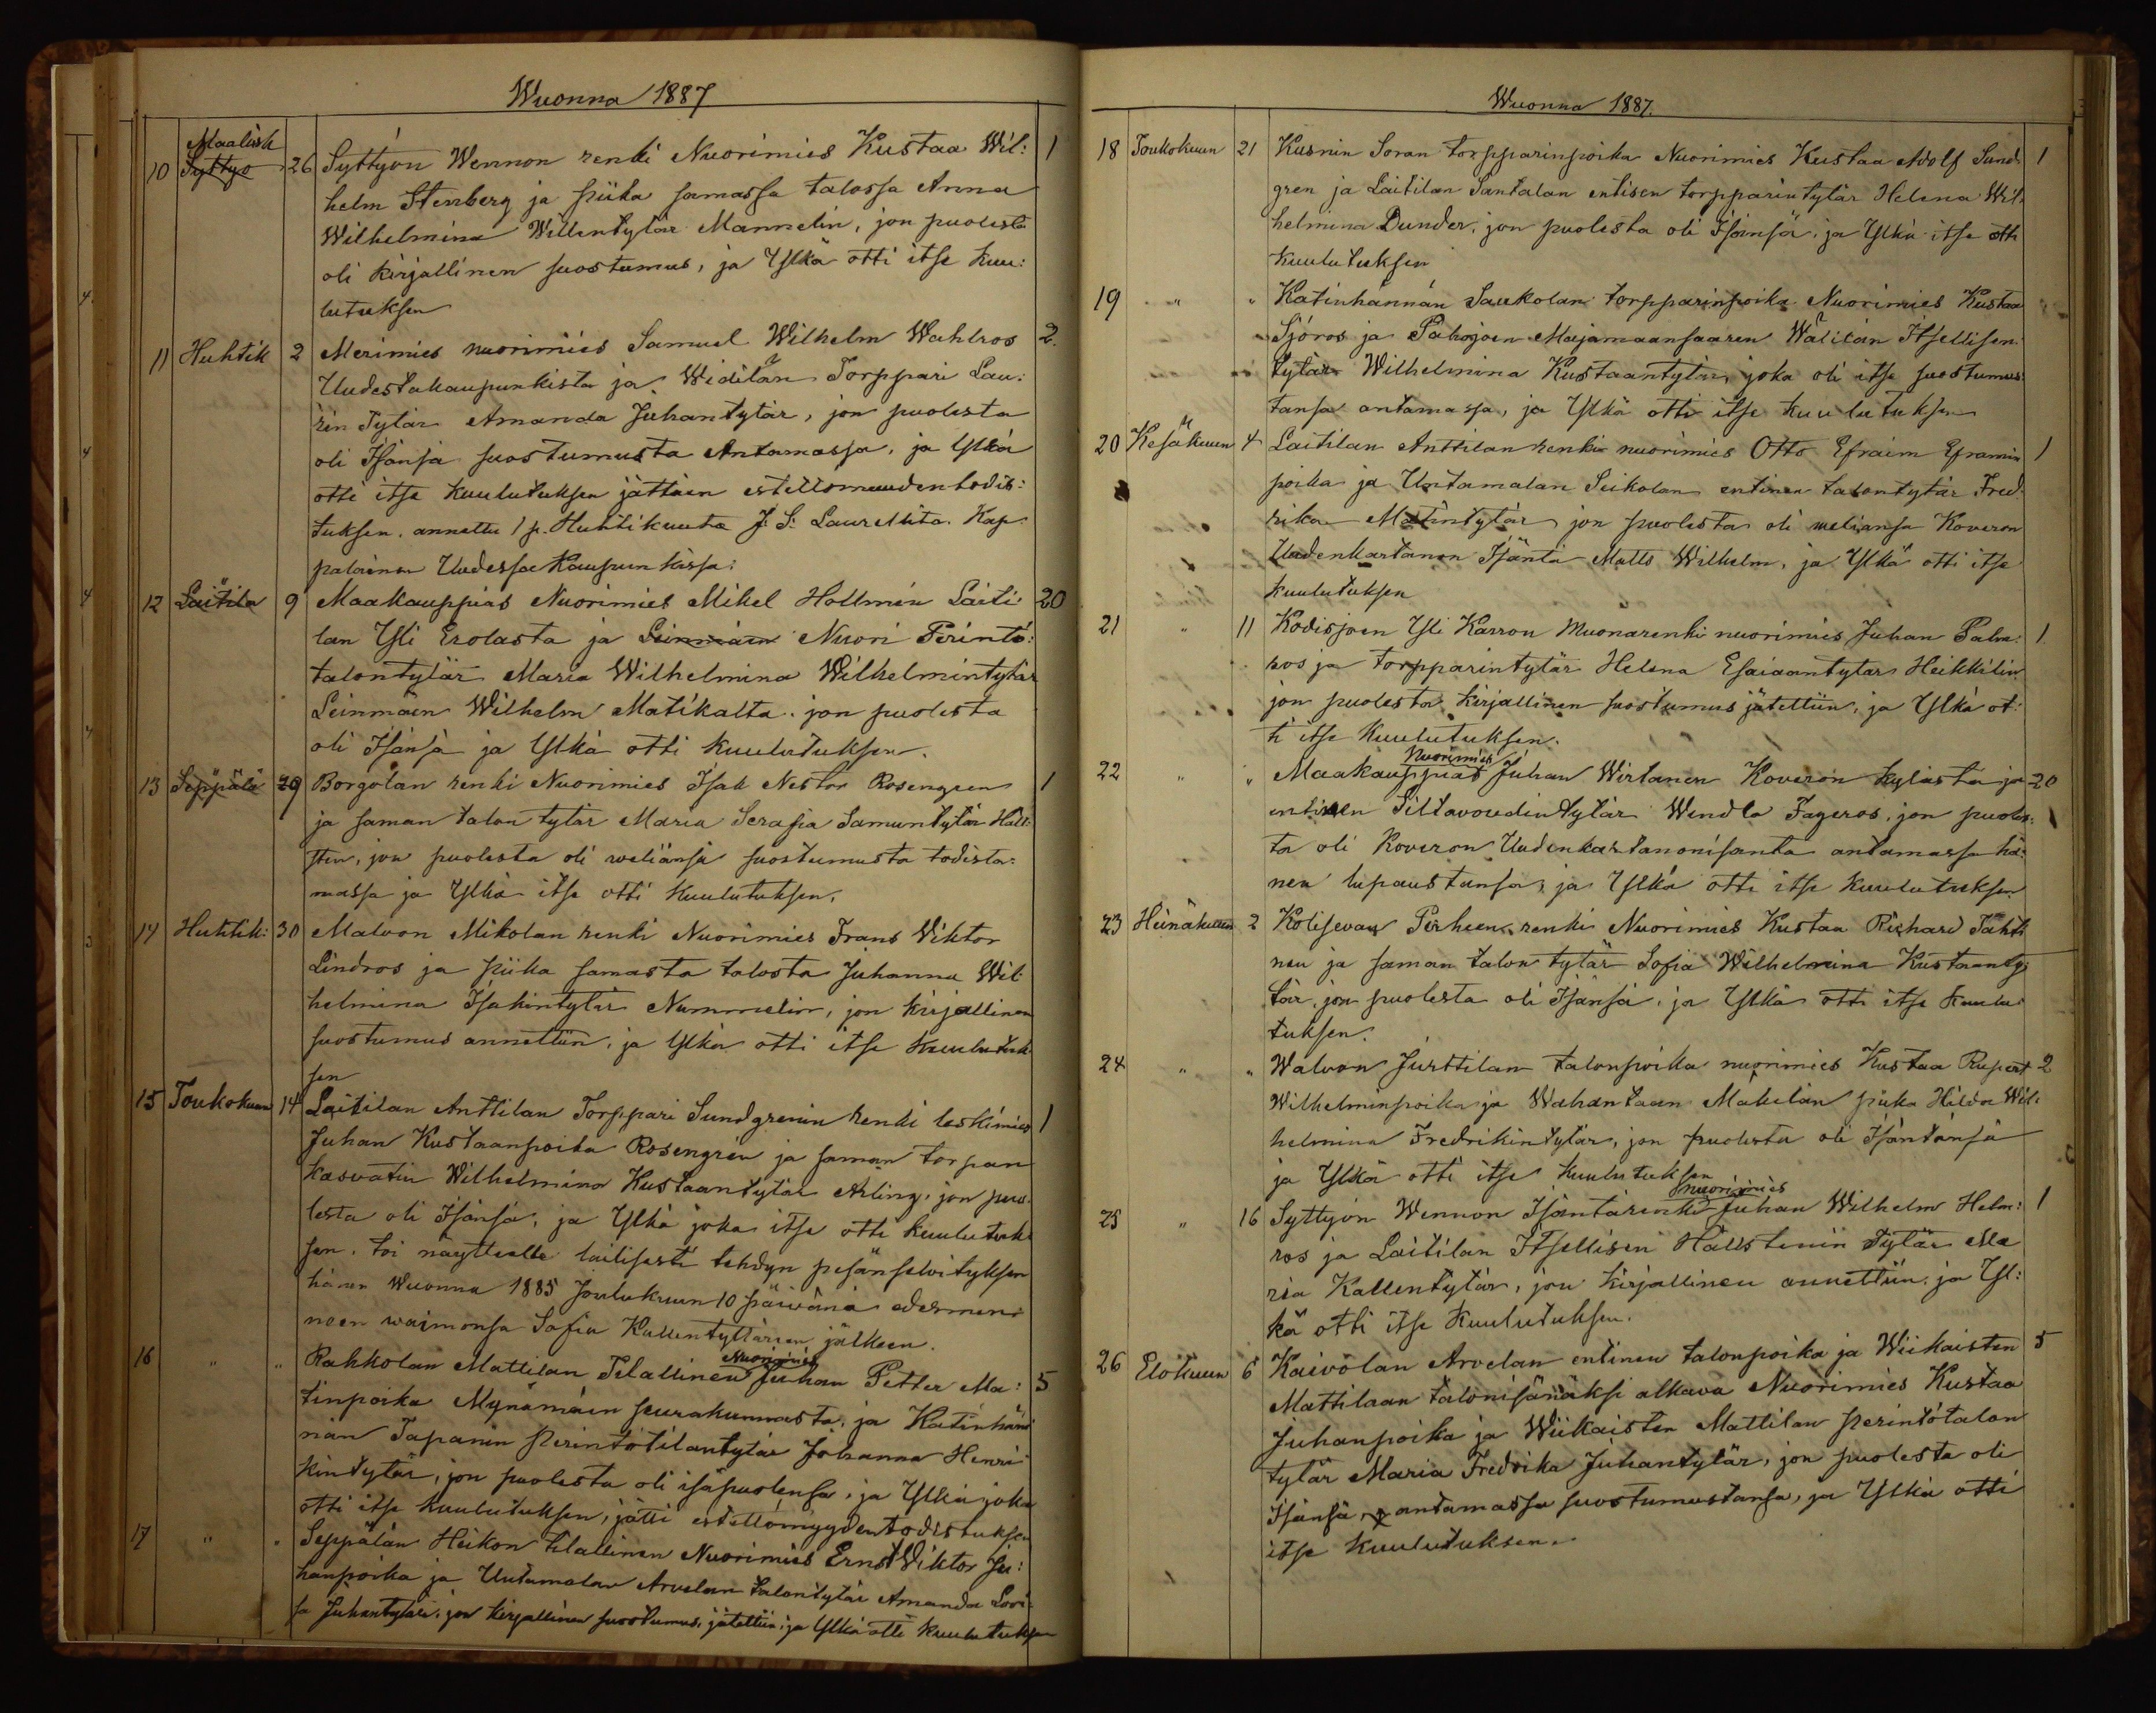 Wuonna 1887
Maalisk
10 Syttyo 26 Syttyön Wennon renki Nuorimies Kustaa Wil: 1
helm Stenberg ja piika samassa talossa Anna
Wilhelmina Willentytär Mannelin, jon puolesta
oli kirjallinen suostumus, ja Ylkä otti itse kuu:
lutuksen
11 Huhtik 2 Merimies nuorimies Samuel Wilhelm Wahlros 2.
Uudestakaupunkista ja Widilän Torppari Lau:
rin Tytär Amanda Juhantytär, jon puolesta
oli Isänsä suostumusta Antamassa, ja Ylkä
otti itse kuulutuksen jättäen estellomuuden todis:
tuksen. annettu 1 p. Huhtikuuta J. S. Kap:
palainen Uudessa Kaupunkissa:
12 Laitila 9 Maakauppias Nuorimies Mikel Hollmén Laiti 20
lan Yli Erolasta ja Leinmäen Nuori Perintö:
talontytär Maria Wilhelmina Wilhelmintytär
Leinmäen Wilhelm Matikalta. jon puolesta
oli Isänsä ja Ylkä otti kuulutuksen.
13 Seppälä 29 Borgolan renki Nuorimies Isak Nestor Rosengren 1
ja saman talon tytär Maria Serafia Samuntytär Häll:
sten, jon puolesta oli weliänsä suostumusta todista:
massa ja Ylkä itse otti kuulutuksen.
14 Huhtik: 30 Malvon Mikolan renki Nuorimies Frans Viktor
Lindros ja piika samasta talosta Juhanna Wil
helmina Isakintytär Nummelin, jon kirjallinen
suostumus annettiin, ja Ylkä otti itse kuulutuk
sen
15 Toukokuun 14 Laitilan Anttilan Torppari Sundgrenin renki leskimies 1
Juhan Kustaanpoika Rosengrén ja saman torpan
kasvatin Wilhelmina Kustaantytär Arling, jon puo:
lesta oli Isänsä, ja Ylkä joka itse otti kuulutuk
sen. toi näytteelle laillisesti tehdyn pesänselvityksen
hänen Wuonna 1885 Joulukuun 10 päivänä edesmen
neen waimonsa Sofia Kallentyttären jälkeen.
Nuorimies
16 " " Rahkolan Mattilan Tilallinen Juhan Petter Ma: 5
tinpoika Mynämäen seurakunnasta, ja Katinhän
nän Tapanin Perintötilantytär Johanna Henri
kintytär, jon puolesta oli isäpuolensa, ja Ylkä joka
otti itse kuulutuksen, jätti estellömyyden todistuksen
17 " " Seppälän Heikon tilallinen Nuorimies Ernst Wiktor Ju:
hanpoika ja Untamalan Arvelan talontytär Amanda Lovi
sa Juhantytär, jon kirjallinen suostumus, jätettiin, ja Ylkä otti kuulutuksen
Wuonna 1887.
18 Toukokuun 21 Kusnin Soran torpparinpoika Nuorimies Kustaa Adolf Sund 1
gren ja Laitilan Santalan entisen torpparintytär Helena Wil:
helmina Dunder, jon puolesta oli Isänsä, ja Ylkä itse otti
kuulutuksen
19 " " Katinhännän Saukolan torpparinpoika Nuorimies Kustaa
Sjöros ja Pahojoen Maijamaansaaren Itsellisen
tytär Wilhelmina Kustaantytär, joka oli itse suostumus
tansa antamassa, ja Ylkä otti itse kuulutuksen
20 Kesäkuun 4 Laitilan Anttilan renki nuorimies Otto Efraim Eframin 1
poika ja Untamalan Seikolan entinen talontytär Fred:
rika Matintytär jon puolesta oli weliansa Koveron
Uudenkartanon Isäntä Matts Wilhelm, ja Ylkä otti itse
kuulutuksen
21 " 11 Kodisjoen Yli Karron Muonarenki nuorimies Juhan Palm: 1
ros ja torpparintytär Helena Esaiaantytar Heikkilin
jon puolesta kirjallinen suostumus jätettiin, ja Ylkä ot:
ti itse kuulutuksen.
Nuorimies
22 " " Maakauppias Juhan Wirtanen Koveron kylästa ja 20
entisen Siltavoudintytär Wendla Fageros, jon puoles:
ta oli Koveron Uudenkartanonisanta antamassa hä:
nen lupaustansa, ja Ylkä otti itse kuulutuksen
23 Heinäkuun 2 Kolisevan Perheen renki Nuorimies Kustaa Richard Tähti
nen ja saman talon tytär Sofia Wilhelmina Kustaanty:
tär, jon puolesta oli Isänsä, ja Ylkä otti itse kuulu:
tuksen.
24 " " Walvon Jurttilan talonpoika nuorimies Kustaa Rupert 2
Wilhelminpoika ja Wahantaan Mäkilän piika Hilda Wil:
helmina Fredrikintytär, jon puolesta oli Isäntänsä
ja Ylkä otti itse kuulutuksen
nuorimies
25 " 16 Syttyön Wennon Isäntärenki Juhan Wilhelm Helm: 1
ros ja Laitilan Itsellisen Hällstenin Tytär Ma
ria Kallentytär, jon kirjallinen annettiin, ja Yl:
kä otti itse kuulutuksen.
26 Elokuun 6 Kaivolan Arvelan entinen talonpoika ja Wiikaisten 5
Mattilaan talonisänäksi alkava Nuorimies Kustaa
Juhanpoika ja Wiikaisten Mattilan perintötalon
tytär Maria Fredrika Juhantytär, jon puolesta oli
Isänsä, antamassa suostumustansa, ja Ylkä otti
itse kuulutuksen.